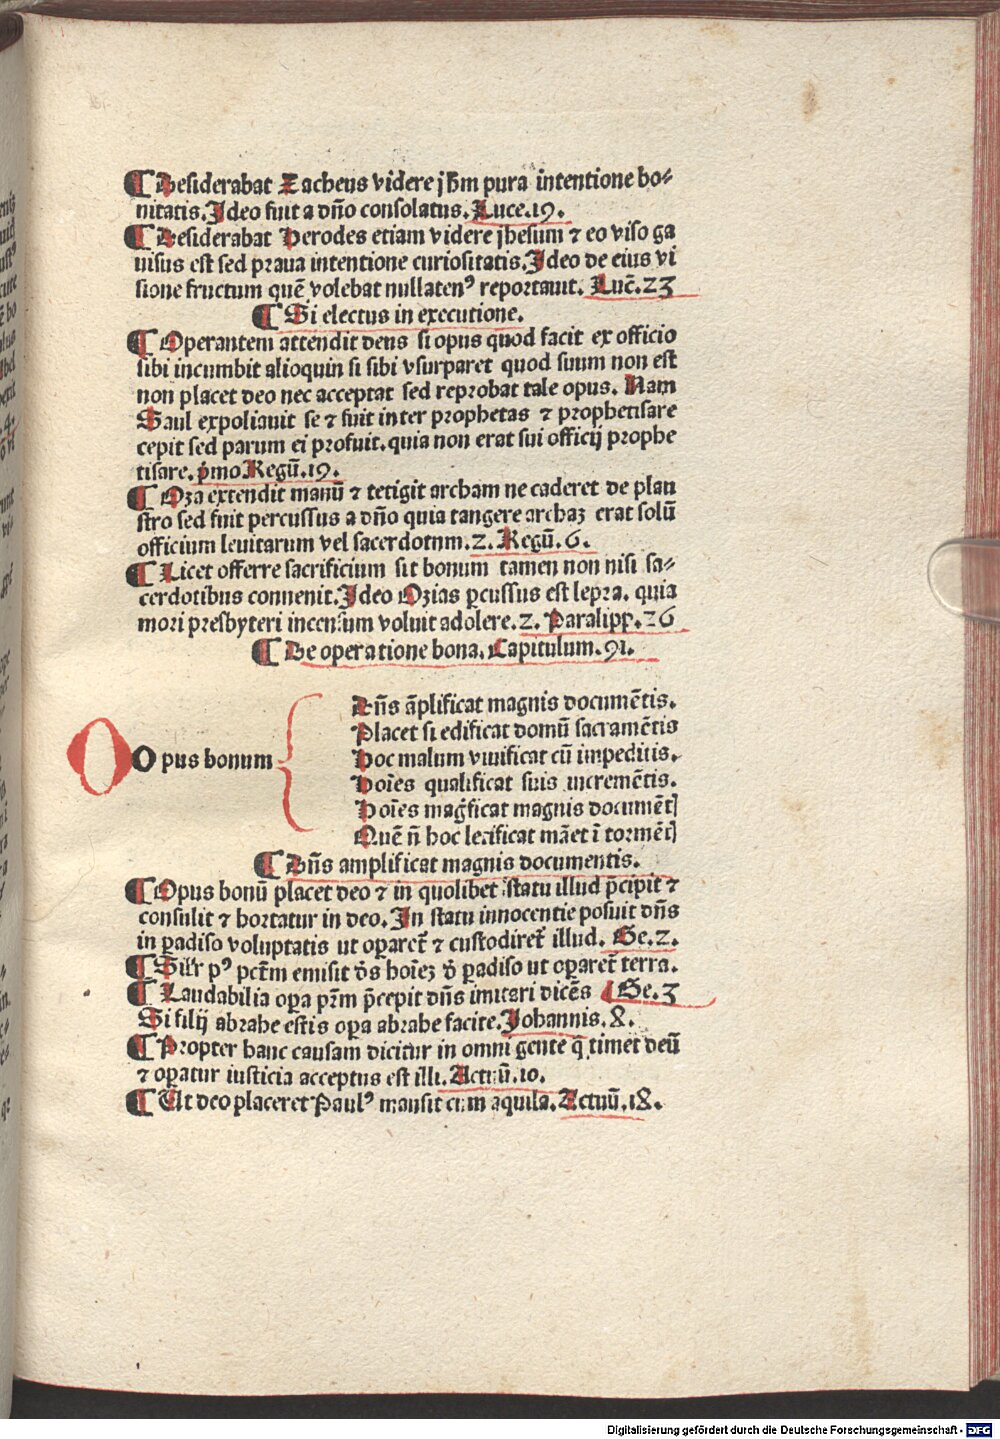 ¶ Desiderabat Zacheus videre jhm̄ pura intentione bo⸗
nitatis. Ideo fuit a dn̄o consolatus. Luce.19.
¶ Desiderabat Herodes etiam videre jhesum ⁊ eo viso ga
uisus est sed praua intentione curiositatis. Ideo de eius vi
sione fructum quē volebat nullatenꝰ reportauit. Luc̄.23
¶ Si electus in executione.
¶ Operantem attendit deus si opus quod facit ex officio
sibi incumbit alioquin si sibi vsurparet quod suum non est
non placet deo nec acceptat sed reprobat tale opus. Nam
Saul expoliauit se ⁊ fuit inter prophetas ⁊ prophetisare
cepit sed parum ei profuit. quia non erat sui officij prophe
tisare. p̄mo Regū.19.
¶ Oza extendit manū ⁊ tetigit archam ne caderet de plau
stro sed fuit percussus a dn̄o quia tangere archaꝫ erat solū
officium leuitarum vel sacerdotum.2. Regū.6.
¶ Licet offerre sacrificium sit bonum tamen non nisi sa⸗
cerdotibus conuenit. Ideo Ozias ꝑcussus est lepra. quia
mori presbyteri incensum voluit adolere.2. Paralipp̄.26
¶ De operatione bona. Capitulum.91.
Dn̄s āplificat magnis documētis.
Placet si edificat domū sacramētis
O Opus bonum
Hoc malum viuificat cū impeditis.
Hoīes qualificat suis incremētis.
Hoīes maḡficat magnis documēt)
Quē n̄ hoc letificat māet ī tormēt)
¶ Dn̄s amplificat magnis documentis.
¶ Opus bonū placet deo ⁊ in quolibet statu illud p̄cipit ⁊
consulit ⁊ hortatur in deo. In statu innocentie posuit dn̄s
in ꝑadiso voluptatis ut oꝑaret̄ ⁊ custodiret̄ illud. Ge.2.
¶ Sil̄r pꝰ pctm̄ emisit d̄s hoīeꝫ d̄ ꝑadiso ut oꝑaret̄ terra.
¶ Laudabilia oꝑa pr̄m p̄cepit dn̄s imitari dicēs ⸿ Ge.3
Si filij abrahe estis oꝑa abrahe facite. Johannis.8.
¶ Propter hanc causam dicitur in omni gente q̄ timet deū
⁊ oꝑatur iusticia acceptus est illi. Actuū.10.
¶ Ut deo placeret Paulꝰ mansit cum aquila. Actuū.18.
Digitalisierung gefördert durch die Deutsche Forschungsgemeinschaft - DFG